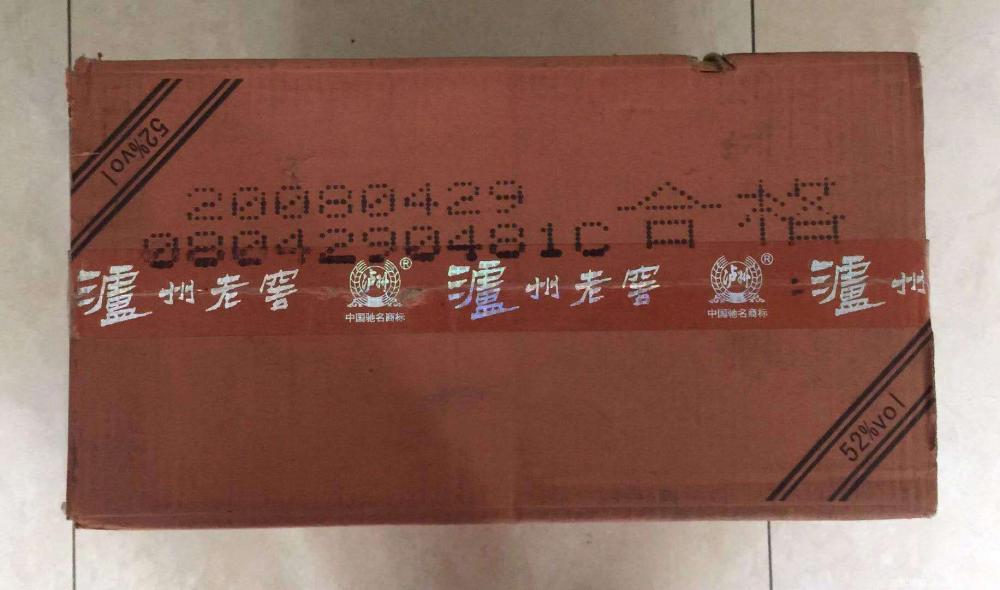 52%vol
20080429
0804290481C 合格
泸州老窖 泸州® 泸州老窖 泸州® 泸州
中国驰名商标 中国驰名商标
52%vol